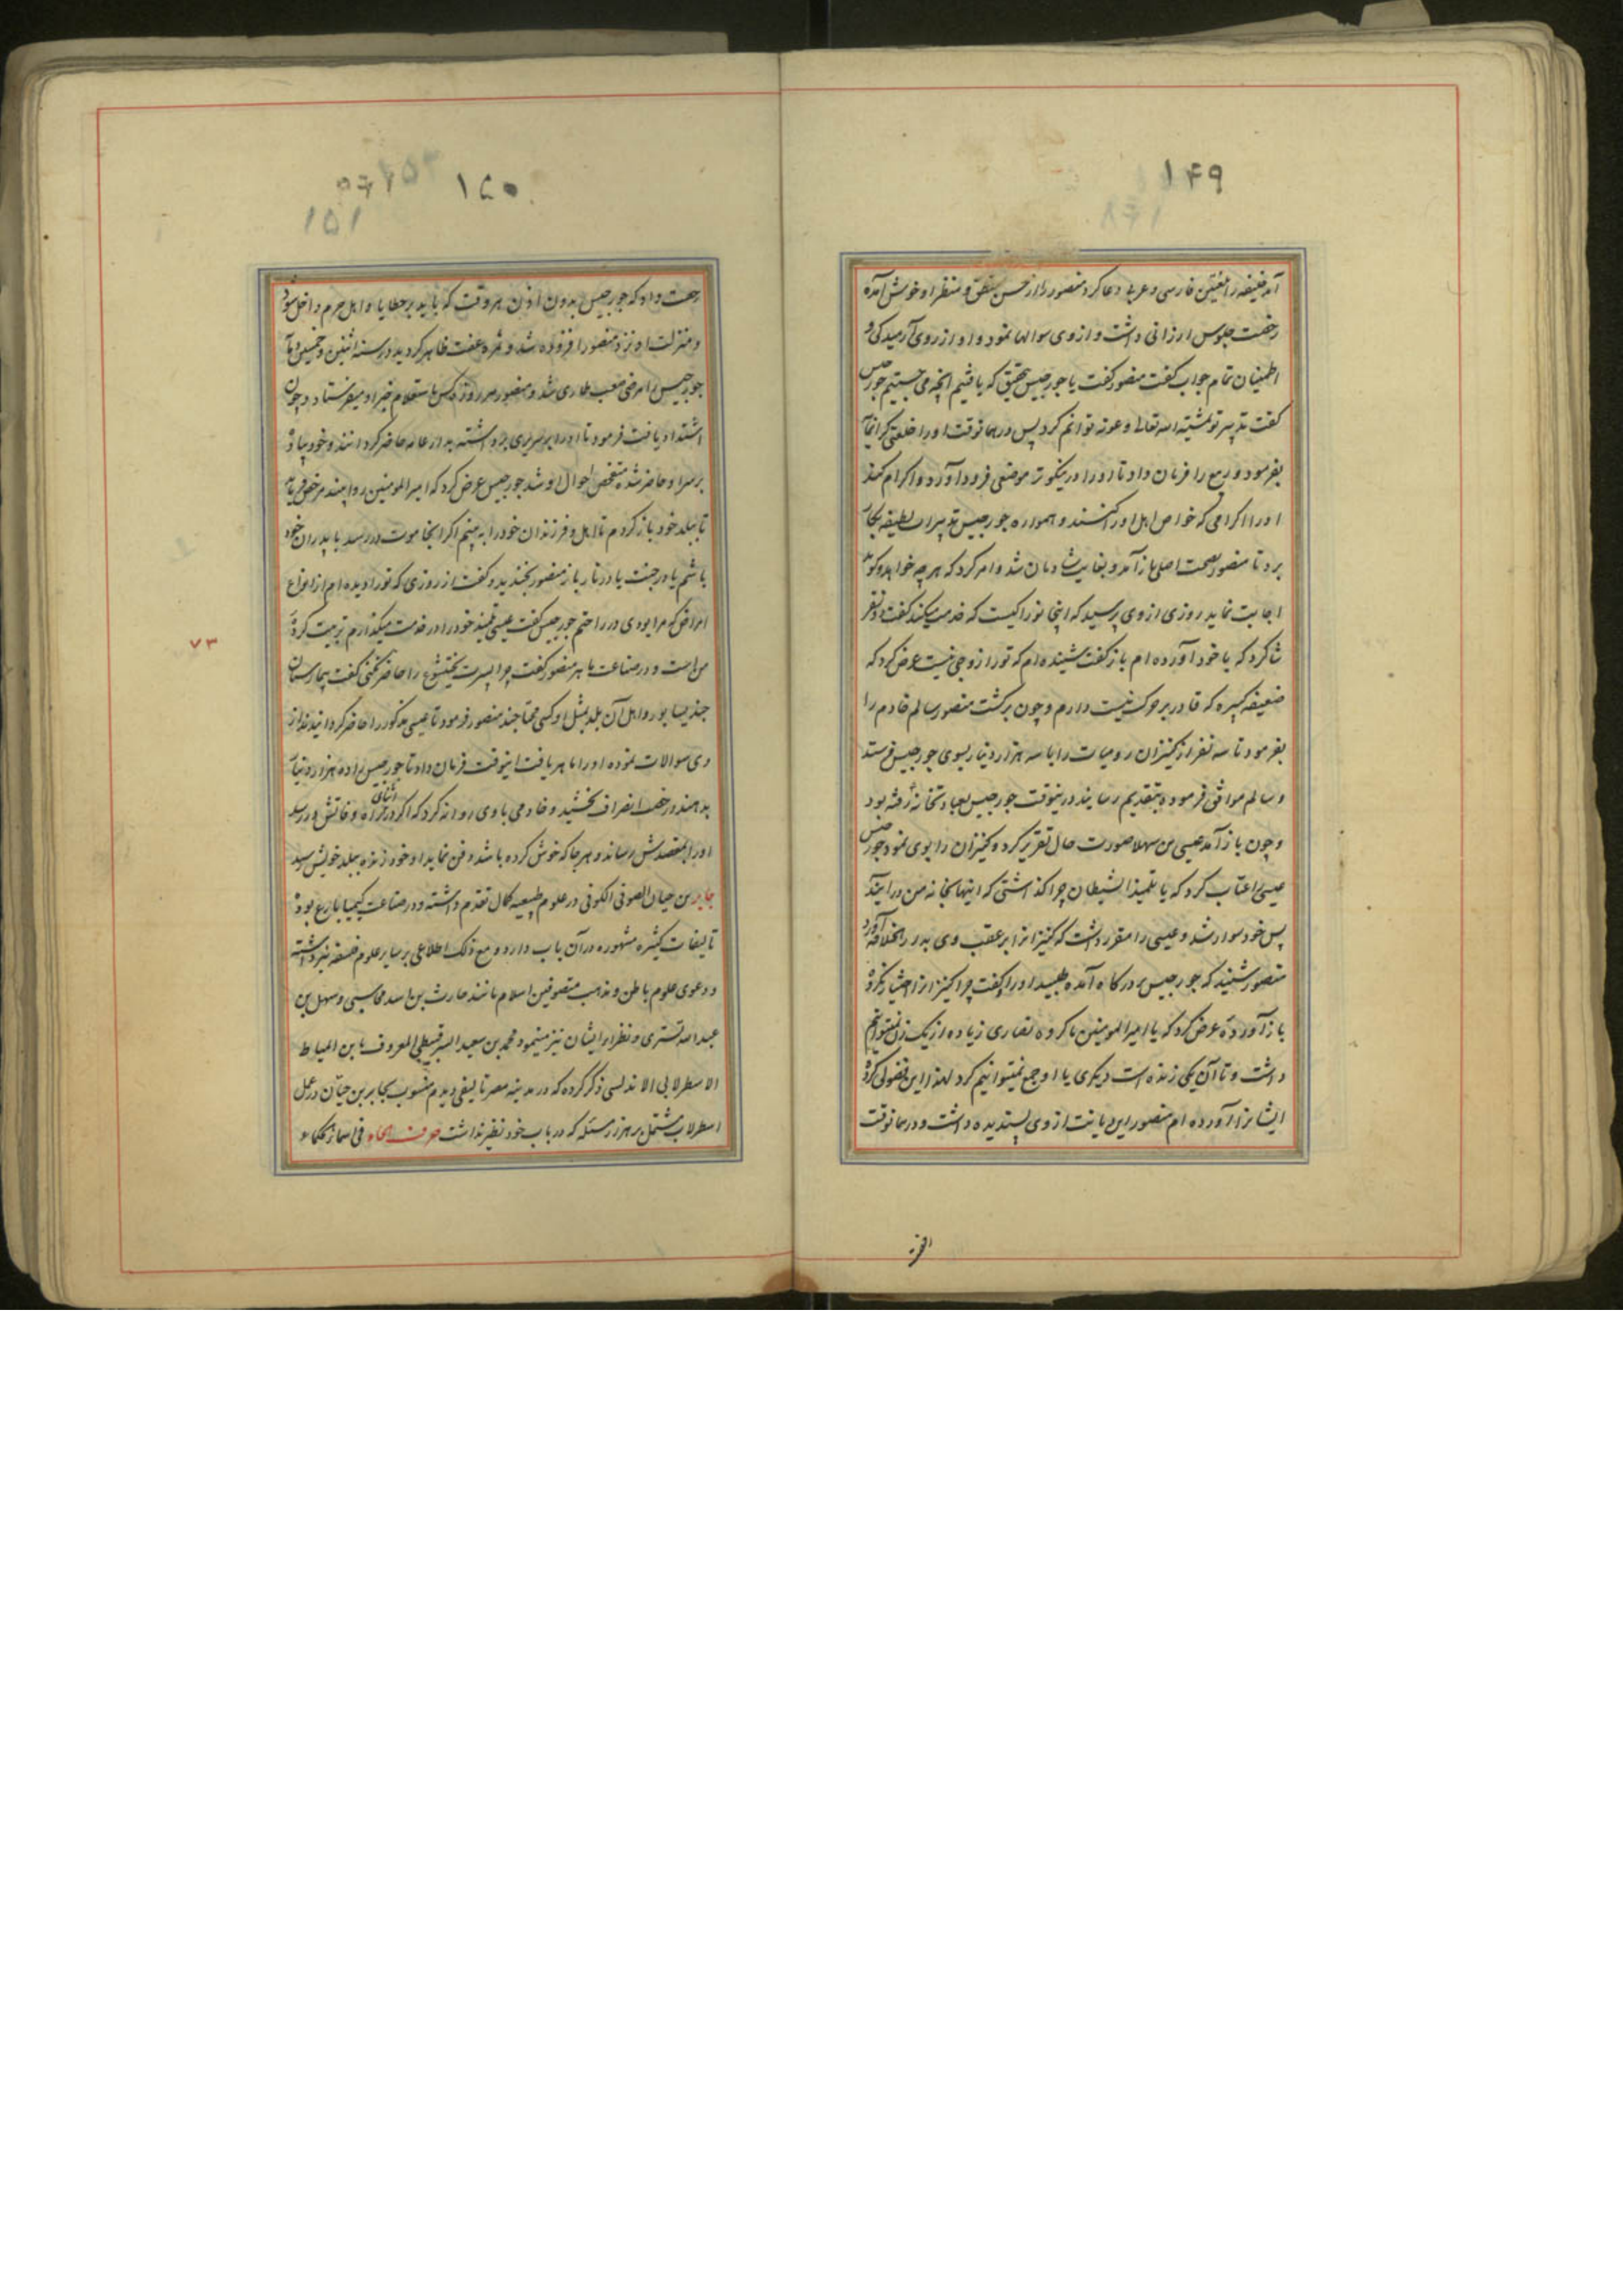 ۱۴۹
آمد خلیفه را بلغتین فارسی و عربی دعا کرد منصور را از حسن منطق و منظر او خوش آمده
رخصت جلوس ارزانی داشت و از وی سوالها نمود و او از روی آرمیدگی و
اطمینان تمام جواب گفت منصور گفت یا جورجیس تحقیق که یافتیم آنچه می جستیم جورجیس
گفت تدبیر تو بمشیته الله تعالی و عونه توانم کرد پس در همانوقت او را خلعتی گرانمایه
بفرمود و ربیع را فرمان داد تا او را در نیکوتر موضعی فرود آورد و اکرام کند
او را اکرامی که خواص اهل او را کنند و همواره جورجیس تدبیرات لطیفه بکار
برد تا منصور بصحت اصلی باز آمد و بغایت شادمان شد و امر کرد که هر چه خواهد و گوید
اجابت نماید روزی از وی پرسید که اینجا تو را کیست که خدمت میکند گفت دو نفر
شاگرد که با خود آورده ام باز گفت شنیده ام که تو را زوجی نیست عرض کرد که
ضعیفه کبیره که قادر بر حرکت نیست دارم و چون برگشت منصور سالم خادم را
بفرمود تا سه نفر از کنیزان رومیات را با سه هزار دینار بسوی جورجیس فرستد
و سالم موافق فرموده بتقدیم رسانید در ینوقت جورجیس بعبادتخانه رفته بود
و چون باز آمد عیسی بن سهلا صورت حال تقریر کرد و کنیزان را بوی نمود جورجیس
عیسی را عتاب کرد که یا تلمیذ الشیطان چرا گذاشتی که اینها بخانه من در آیند
پس خود سوار شد و عیسی را مقرر داشت که کنیزانرا بر عقب وی بدر دار الخلافه آورد
منصور شنید که جورجیس بدرگاه آمده طلبید او را گفت چرا کنیزانرا اختیار نکرده
باز آورده عرض کرد که یا امیر المومنین ما گروه نصاری زیاده از یک زن نمیتوانیم
داشت و تا آن یکی زنده است دیگری با او جمع نمیتوانیم کرد لهذا این فضولی کرده
ایشانرا آورده ام منصور این دیانت از وی پسندیده داشت و در همانوقت
۱۵۰
151
رخصت داد که جورجیس بدون اذن هر وقت که باید بر حظایا و اهل حرم داخل شود
و منزلت او نزد منصور افزوده شد و ثمره عفت ظاهر گردید در سنه اثنین و خمسین و مأة
جورجیس را مرضی صعب طاری شد و منصور هر روز کس باستعلام خبر او میفرستاد و چون
اشتداد یافت فرمود تا او را بر سریری برداشته بدار عامه حاضر گردانند و خود پیاده
بر سر او حاضر شده متفحص احوال او شد جورجیس عرض کرد که امیر المومنین روا بیند مرخص فرماید
تا ببلد خود باز گردم تا اهل و فرزندان خود را به بینم اگر آنجا موت در رسد با پدران خود
باشم یا در جنت یا در نار باز منصور بخندید و گفت از روزی که تو را دیده ام از انواع
امراض که مرا بودی در راحتم جورجیس گفت عیسی تلمیذ خود را در خدمت میگذارم تربیت کرده
من است و در صناعت ماهر منصور گفت چرا پسرت بختیشوع را حاضر نکنی گفت بیمارستان
جندیسابور و اهل آن بلد بمثل او کسی محتاجند منصور فرمود تا عیسی مذکور را حاضر گردانیدند از
وی سوالات نموده او را ماهر یافت اینوقت فرمان داد تا جورجیس را ده هزار دینار
بدهند و رخصت انصراف بخشید و خادمی با وی روانه کرد که اگر در اثنای راه وفاتش در رسد
او را بمقصدش رساند و هر جا که خوش کرده باشد دفن نماید او خود زنده ببلد خویش رسید
جابر بن حیان الصوفی الکوفی در علوم طبیعیه کمال تقدم داشته و در صناعت کیمیا بارع بوده
تالیفات کثیره مشهوره در آن باب دارد و مع ذلک اطلاعی بر سایر علوم فلسفه نیز داشته
و دعوی علوم باطن و مذهب متصوفین اسلام مانند حارث بن اسد محاسبی و سهل بن
عبد الله تستری و نظراء ایشان نیز مینمود محمد بن سعید السرقسطی المعروف بابن المیاط
الاسطرلابی الاندلسی ذکر کرده که در مدینه مصر تالیفی دیدم منسوب بجابر بن حیان در عمل
اسطرلاب مشتمل بر هزار مسئله که در باب خود نظیر نداشت حرف الحاء فی اسماء الحکماء
۷۳